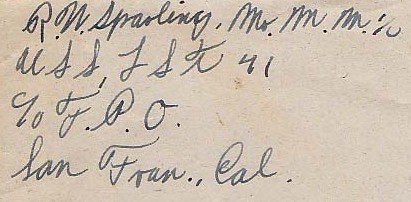 R. W. Sparling, Mo. M. M. 1/c
U S S, L S T 41
c/o F.P.O.
San Fran., Cal.